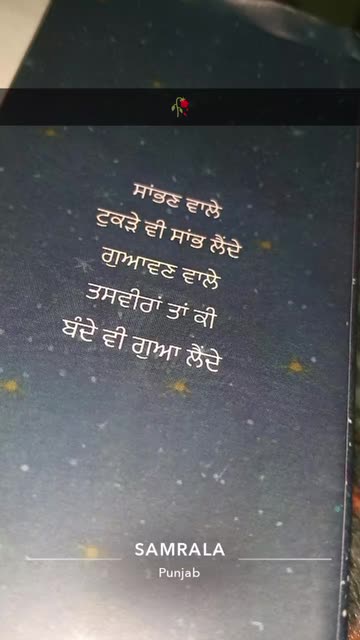 ਸਾਂਭਣ ਵਾਲੇ
ਟੁਕੜੇ ਵੀ ਸਾਂਭ ਲੈਂਦੇ
ਗੁਆਵਣ ਵਾਲੇ
ਤਸਵੀਰਾਂ ਤਾਂ ਕੀ
ਬੰਦੇ ਵੀ ਗੁਆ ਲੈਂਦੇ
SAMRALA
Punjab